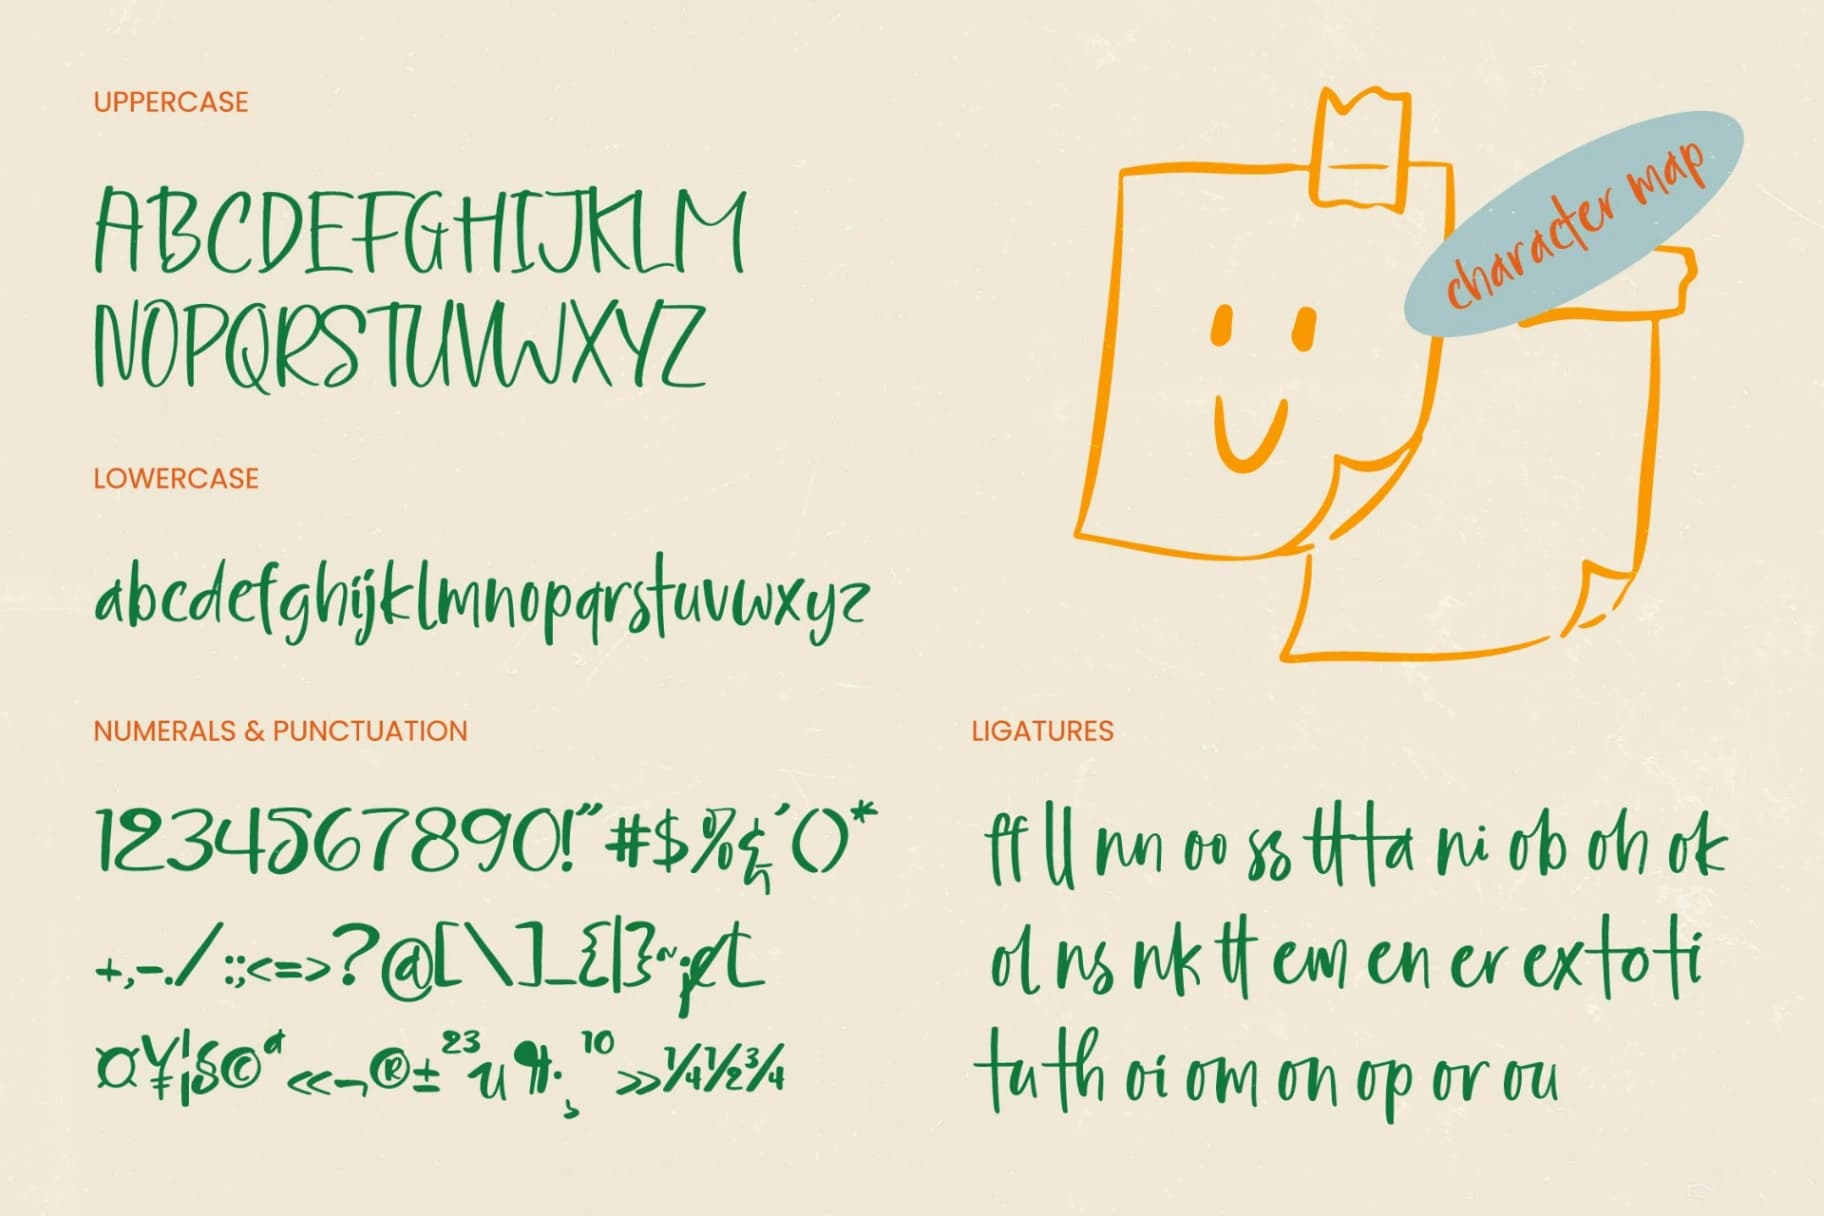 UPPERCASE
ABCDEFGHIJKLM
NOPQRSTUVWXYZ
character map
LOWERCASE
abcdefghijklmnopqrstuvwxyz
NUMERALS & PUNCTUATION
1234567890!"#$%&'()*
+,-./:;<=>?@[\]_{|}~¡¢£
¤¥¦§©ª«¬®±²³µ¶·¸¹º»¼½¾
LIGATURES
ff ll nn oo ss tt ta ni ob oh ok
ol ns nk tt em en er ex to ti
tu th oi om on op or ou